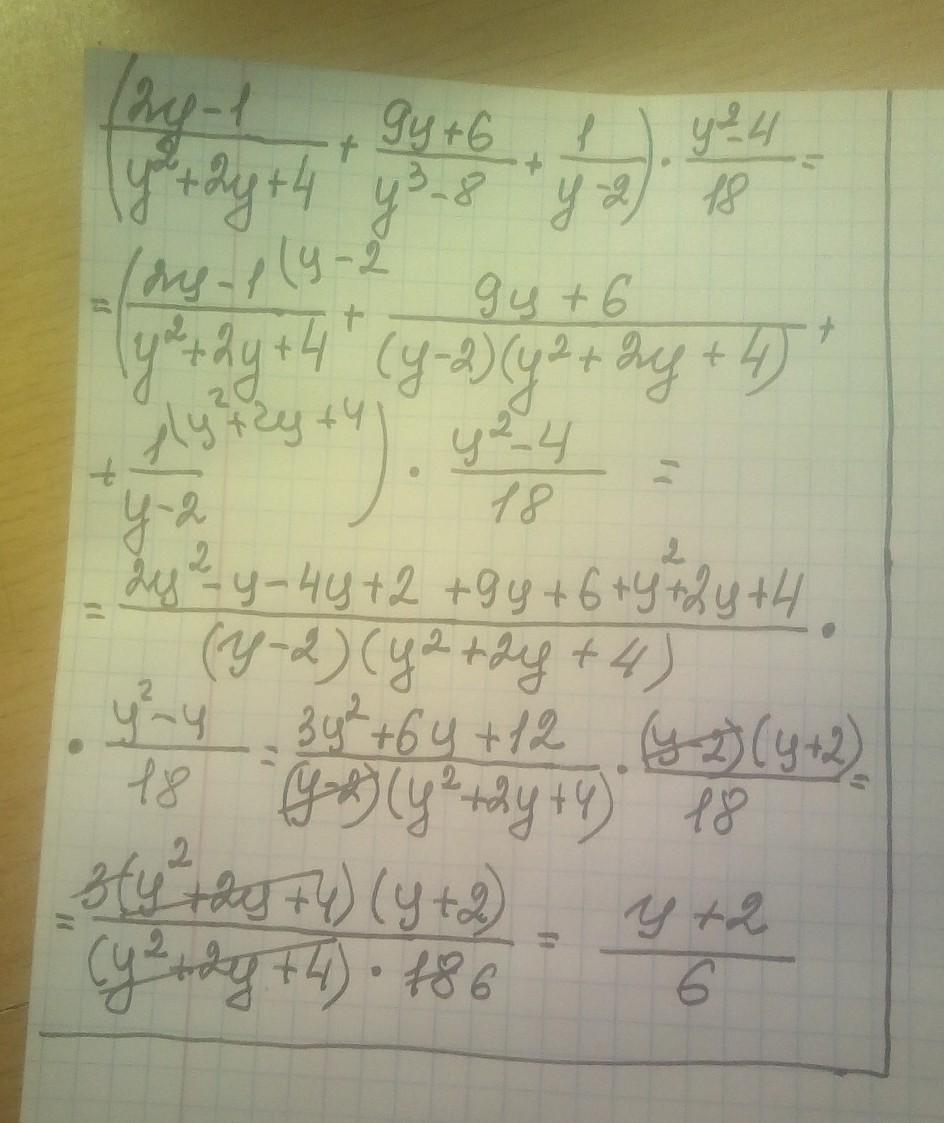 (2y-1/y²+2y+4 + 9y+6/y³-8 + 1/y-2) · y²-4/18 =
= (2y-1 (y-2/y²+2y+4 + 9y+6/(y-2)(y²+2y+4) +
+ 1 (y²+2y+4/y-2) · y²-4/18 =
= 2y²-y-4y+2+9y+6+y²+2y+4/(y-2)(y²+2y+4) ·
· y²-4/18 = 3y²+6y+12/(y-2)(y²+2y+4) · (y-2)(y+2)/18 =
= 3(y²+2y+4)(y+2)/(y²+2y+4) · 18 6 = y+2/6